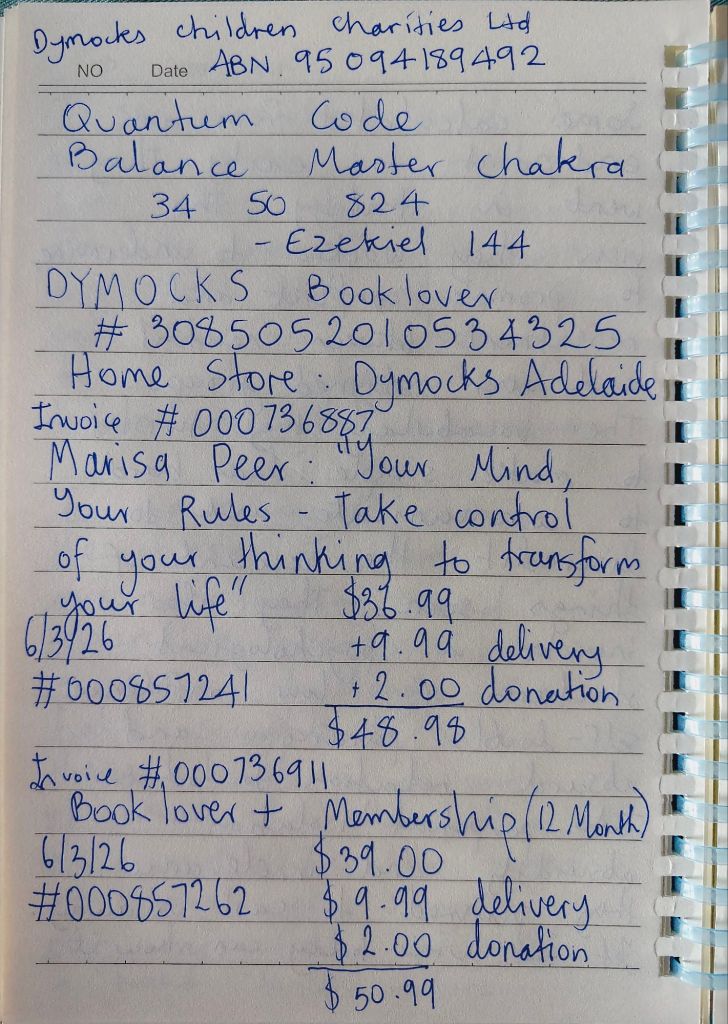 Dymocks children charities Ltd
NO Date ABN. 95 094189492
Quantum Code
Balance Master Chakra
34 50 824
- Ezekiel 144
DYMOCKS Booklover
# 3085052010534325
Home Store: Dymocks Adelaide
Invoice # 000736887
Marisa Peer: "Your Mind,
Your Rules - Take control
of your thinking to transform
your life" $36.99
6/3/26 +9.99 delivery
#000857241 + 2.00 donation
$48.98
Invoice # 000736911
Book lover + Membership (12 Month)
6/3/26 $39.00
#000857262 $9.99 delivery
$2.00 donation
$50.99